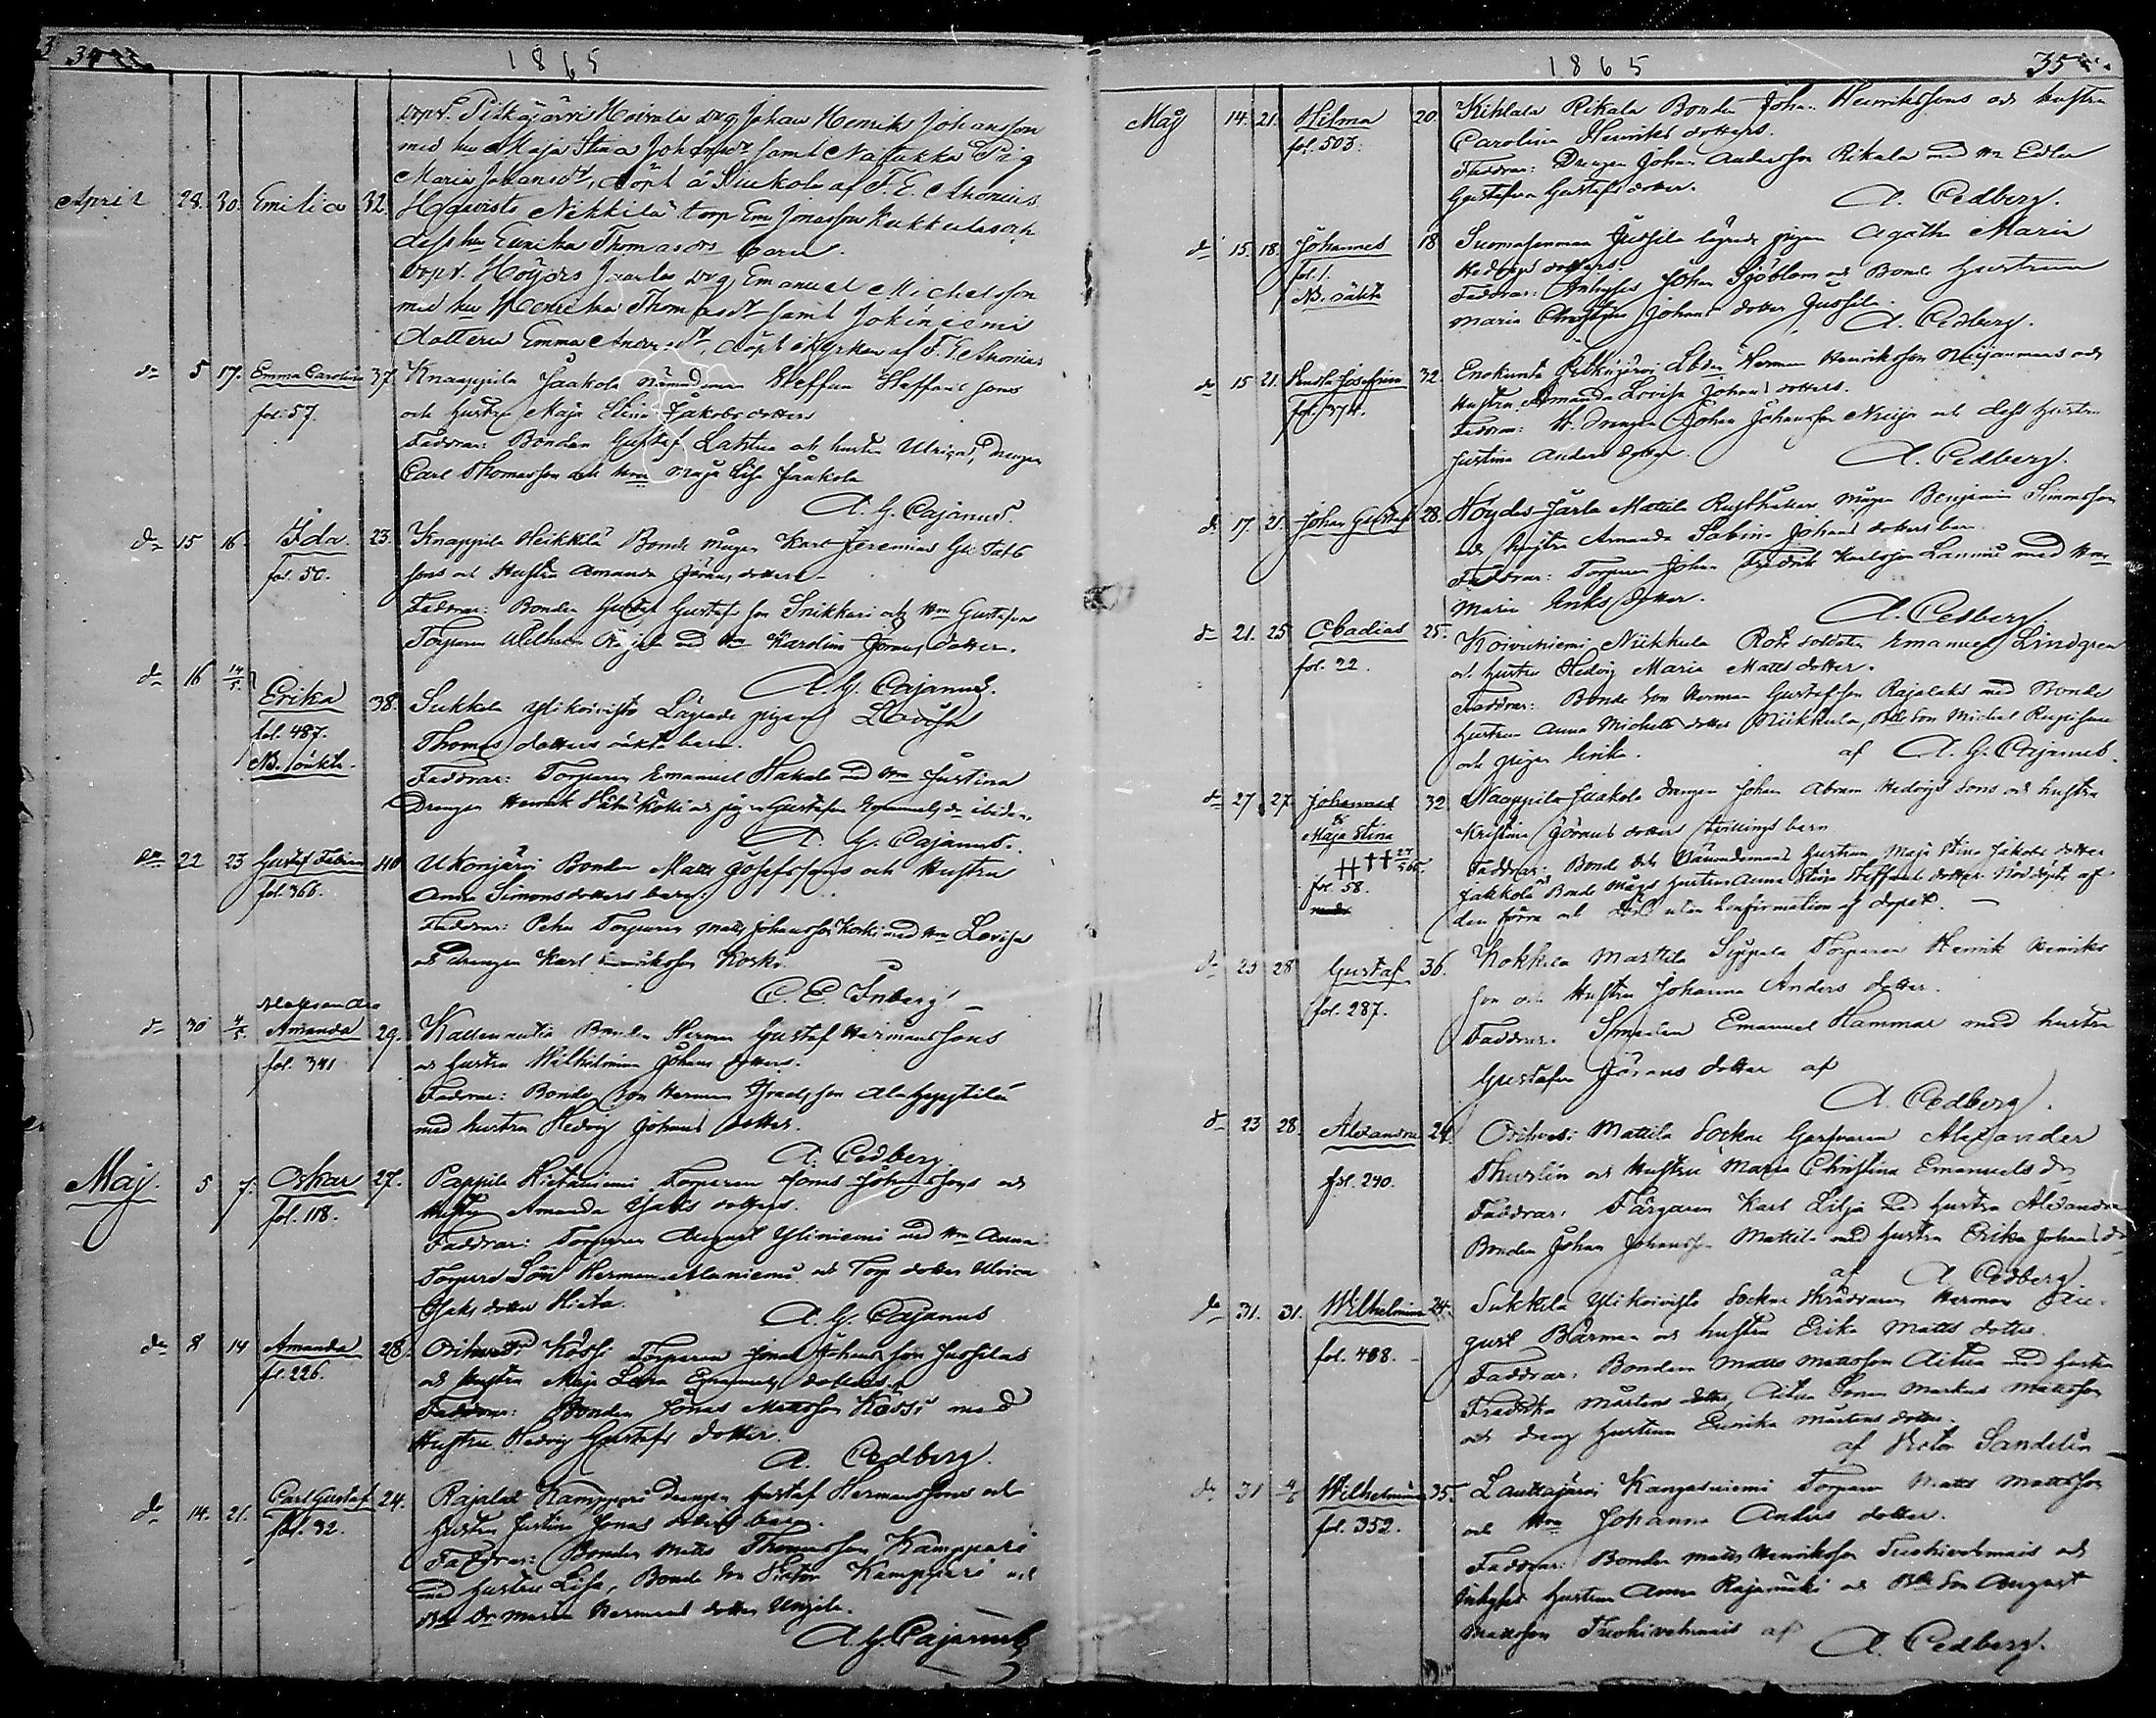 34
1865
Torp. Pitkäjärvi Koivula drg Johan Henrik Johansson
med hu Maja Stina Johansdr samt Natukka Pig
Maria Johansdr, döpt å af F. E. Aronius
April 28. 30. Emilia 32 Nikkilä torp Em Jonasson Kukkula och
dess hu Eunika Thomasdrs barn.
Höydes Jaarla drg Emanuel Michelsson
med hu Henrika Thomasdr samt Jokiniemi
dottern Emma, döpt i Kyrkan af F. E. Aronius
dn 5 17. Emma Carolina 37. Knaappila Jaakola nämndeman Steffan Steffans sons
fol. 57. och hustru Maja Stina Jakobs dotters
Faddrar: Bonden Gustaf Lahtua och hustru Ulrica, drengen
Carl Thomasson och Hru Maja Lisa Jaakola
A. G. Cajanus.
dn 15 16. Ida. 23. Knappila Heikkilä Bonde mågen Karl Jeremias Gustafs
fol. 50. sons och Hustru Amanda Görans dotters
Faddrar: Bonden Gustaf Gustafsson Snikkari och Hru Gustafva
Torparen Wilhelm med Hru Karolina Jöransdotter.
A. G. Cajanus.
dn 16 14/5. Erika 38. Sukkila Ylikoivisto Lägrade pigan Lovisa
fol. 487. Thomas dotters oäkta barn.
NB. oäkta. Faddrar: Torparen Emanuel Hakala med Hru Justina
Drengen Henrik och pigan Gustafva ibidem
A. G. Cajanus.
dn 22 23 Gustaf Fabian 40 Ukonjärvi Bonden Matts Josefssons och Hustru
fol. 366. Anna Simonsdotters barn.
Faddrar: Torparen Matts Johansson Koski med Hru Lovisa
och Drengen Karl Koski.
C. E. Inberg.
Aleksandra
dn 30 4/5. Amanda 29. Bonden Herman Gustaf Hermanssons
fol. 341 och hustru Wilhelmina Johans dotters.
Faddrar: Bonde son Herman Israelsson
med hustru Hedvig Johans dotter.
A. Cedberg.
Maj. 5 7. Oskar 27. Pappila Hietaniemi Torparen Jonas Johanssons och
fol. 118. Hustru Amanda Isaks dotters.
Faddrar: Torparen August Yliniemi med Hru Anna
Torpare Son Herman Alaniemi och Torp dotter Ulrica
Isaks dotter Hieta.
A. G. Cajanus
dn 8 14 Amanda 28. Orihvesi Kässi Torparen Jonas Johansson Jussilas
fol. 226. och hustru Maja Lena Emanuels dotters.
Faddrar: Bonden Jonas Mattsson Kässi med
Hustru Hedvig Gustafs dotter.
A. Cedberg.
dn 14. 21. Carl Gustaf 24. Rajalax Kamppari Drengen Gustaf Hermanssons och
fol. 32. hustru Justina Jonas dotters barn.
Faddrar: Bonden Matts Thomasson Kamppari
med hustru Lisa, Bonde son Kamppari och
Maria Hermans dotter
A. G. Cajanus

1865
35
Maj 14. 21. Hilma 20. Kihlala Rikala Bonden Johan Henrikssons och hustru
fol. 503. Carolina Henriks dotters.
Faddrar: Drengen Johan Andersson Rikala med Hru Edla
Gustafva Gustafsdotter.
A. Cedberg.
dn 15. 18. Johannes 18 Suomasenmaa Jussila lägrade pigan Agatha Maria
fol. 1. Hedvigs dotters.
NB. oäkta Faddrar: Inhyses Johan Sjöblom och Bonde Hustrun
Maria Christina Johans dotter Jussila.
A. Cedberg.
dn 15 21. Josefina 32. Enokunta Pitkäjärvi Herman Henriksson och
fol. 374. Hustru Amanda Lovisa Johans dotters.
Faddrar: drengen Johan Johansson och dess Hustru
Justina Anders dotter.
A. Cedberg.
dn 17. 21. Johan Gustaf 28. Höydes Jaarla Mattila Rusthållare mågen Benjamin Simonsson
och hustru Amanda Sabina Johans dotters barn
Faddrar: Torparen Johan Fredrik Karlsson med Hru
Maria dotter.
A. Cedberg.
dn 21. 25 Obadias 25. Koivuniemi Niikkula Rote soldaten Emanuel Lindgren
fol. 22. och hustru Hedvig Maria Matts dotter.
Faddrar: Bonde son Herman Gustafsson Rajalaks med Bonde
hustrun Anna Michels dotter Niikkula,
och pigan Erika. af A. G. Cajanus.
dn 27 27. Johannes 32. Naappila Jaakola drengen Johan Abram Hedvigs sons och hustru
& Kristina Görans dotters tvillings barn
Maja Stina Faddrar: Bonde och Nämndemans hustrun Maja Stina Jakobs dotter
††† 27/5 65. Jaakola och Bonde mågs hustrun Anna Stina Steffans dotter. Nöd döpte af
fol. 58. den förra och död utan konfirmation af dopet.
dn 23 28 Gustaf 36. Kokkila Marttila Seppälä Torparen Henrik Henriks
fol. 287. son och Hustru Johanna Anders dotter.
Faddrar: Smeden Emanuel Hammar med hustru
Gustafva Görans dotter af
A. Cedberg.
dn 23 28. Alexandra 24. Orihvesi Mattila Sockne Garfvaren Alexander
fol. 240. Thurlin och Hustru Maria Christina Emanuels dr
Faddrar: Färgaren Karl Lilja med hustru Alexandra
Bonden Johan Johansson Mattila med hustru Erika Johans dr
af A. Cedberg.
dn 31. 31. Wilhelmina 24. Sukkila Ylikoivisto Sockne Skräddaren Herman Au-
fol. 488. gust Bärman och hustru Erika Matts dotter.
Faddrar: Bonden Matts Mattsson Aitua med hustru
Fredrika Mårtens dotter, Aitua Sonen Markus Mattsson
och dreng hustrun Eunika Mårtens dotter.
af Victor Sandelin
dn 31 4/6 Wilhelmina 35. Lauttajärvi Kangasniemi Torparen Matts Mattsson
fol. 352. och Hru Johanna Anders dotter.
Faddrar: Bonden Matts Henriksson och
Inhyses hustrun Anna Rajamäki och Bde Son August
Mattsson af A. Cedberg.